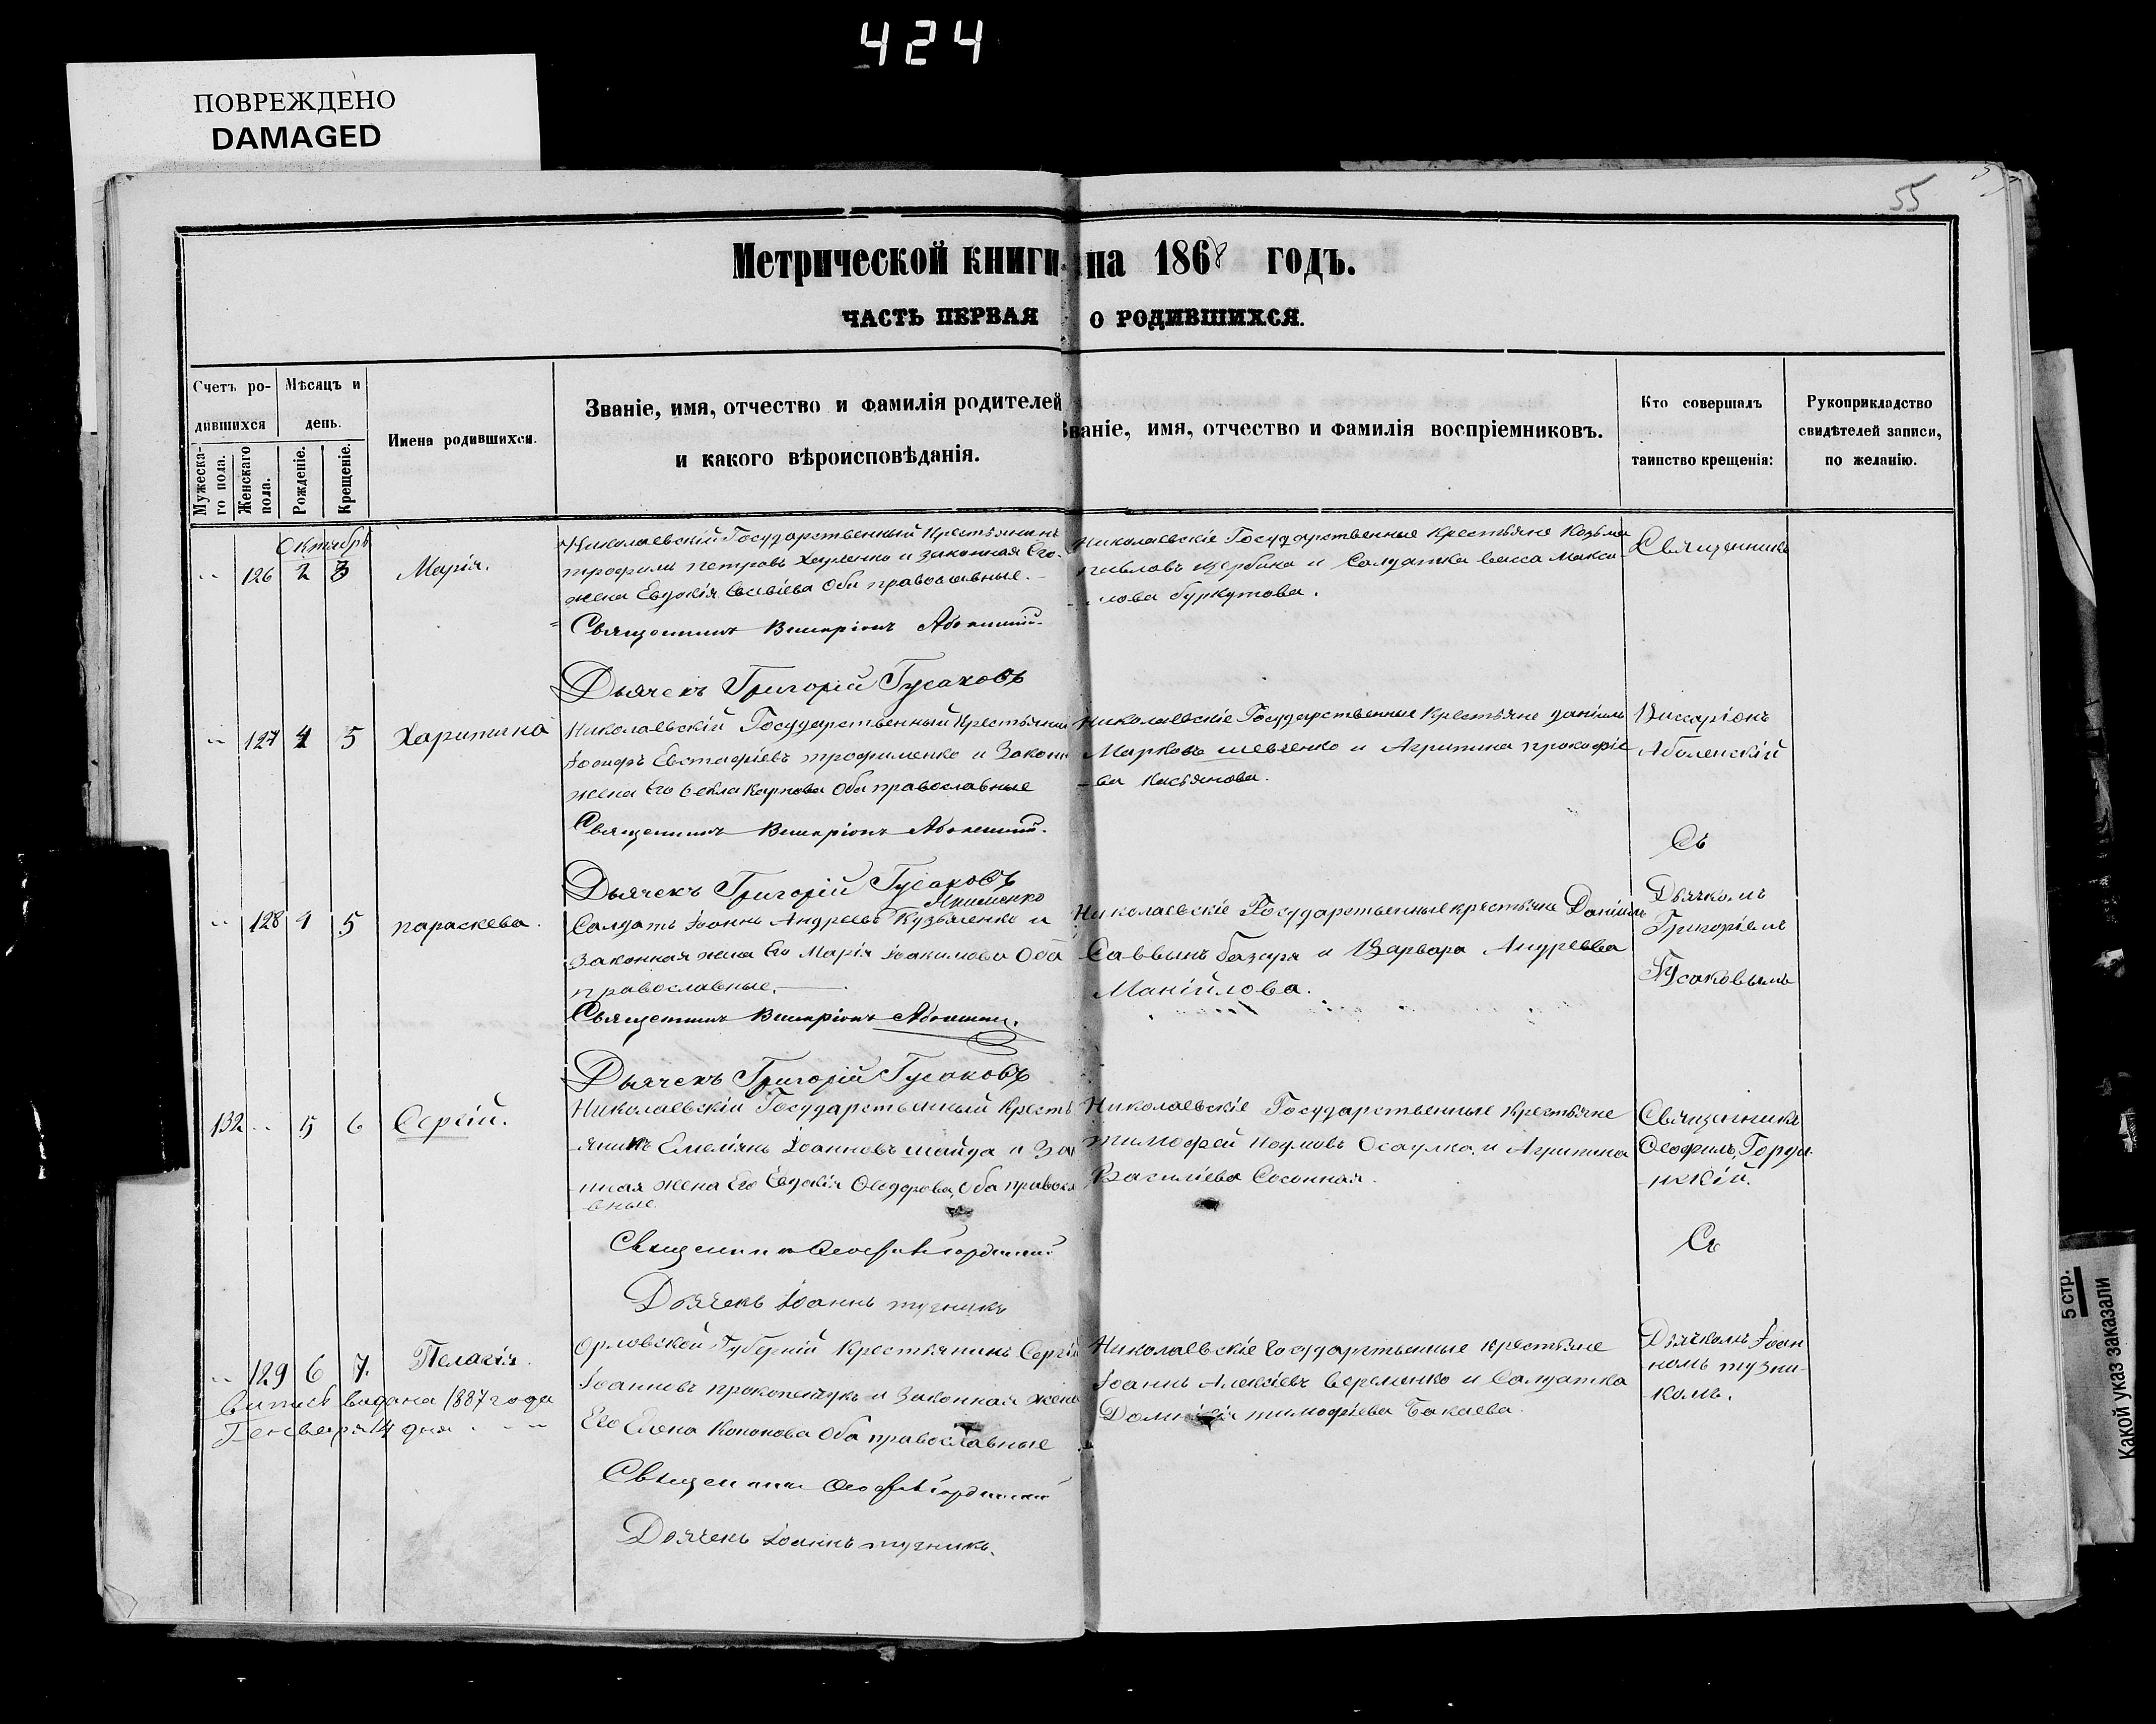 424
ПОВРЕЖДЕНО
DAMAGED
55
Метрической книги на 1868 годъ.
ЧАСТЬ ПЕРВАЯ О РОДИВШИХСЯ.
Счетъ ро-
дившихся
Мужеска-
го пола.
Женскаго
пола.
Мѣсяцъ и
день.
Рожденіе.
Крещеніе.
Имена родившихся.
Званіе, имя, отчество и фамилія родителей
и какого вѣроисповѣданія.
Званіе, имя, отчество и фамилія воспріемниковъ.
Кто совершалъ
таинство крещенія:
Рукоприкладство
свидѣтелей записи,
по желанію.
Октябрь
126 2 3
Марія.
Николаевскій Государственный Крестьянинъ
трофимъ петровъ и законная Его
жена Евдокія Оба православные.
Священникъ Виссаріонъ Аболенскій
Дьячекъ Григорій Гусаковъ
Николаевскіе Государственные Крестьяне Козьма
павловъ щербина и Солдатка васса Макси
мова буркутова.
Священникъ
127 4 5
Харитина
Николаевскій Государственный Крестьянин
Іосифъ Евстафіевъ трофименко и Законн
жена Его Ѳекла Карпова Оба православные
Священникъ Виссаріонъ Аболенскій.
Дьячекъ Григорій Гусаковъ
Николаевскіе Государственные Крестьяне даніилъ
Марковъ шевченко и Агрипина прокофіе
-ва Касьянова.
Виссаріонъ
Аболенскій
Съ
128 4 5
параскева.
Солдатъ Іоаннъ Андреевъ Кузьменко и
Законная жена Его Марія Іоакимова Оба
православные.
Священникъ Виссаріонъ Аболенскій.
Дьячекъ Григорій Гусаковъ
Николаевскіе Государственные крестьяне Даніилъ
Саввинъ базыря и Варвара Андреева
Манійлова.
Дьячкомъ
Григоріемъ
Гусаковымъ
132 5 6
Сергій.
Николаевскій Государственный Кресть
-янинъ Емеліянъ Іоанновъ шайда и Зак
-нная жена Его Евдокія Ѳеодорова, Оба правосла
вные.
Священникъ Ѳеофилъ Гординскій
Дьячекъ Іоаннъ тузникъ
Николаевскіе Государственные Крестьяне
тимофей наумовъ Осаулка, и Агрипина
Василіева Сосонная.
Священникъ
Ѳеофилъ Горди-
нскій.
Съ
129 6 7.
Пелагія.
Выпись выдана 1887 года
Генваря 14 дня
Орловской Губерніи Крестьянинъ Сергій
Іоанновъ прокопенчукъ и Законная жена
Его Елена Кононова Оба православные
Священникъ Ѳеофилъ Гординскій
Дьячекъ Іоаннъ тузникъ.
Николаевскіе Государственные крестьяне
Іоаннъ Алексіевъ Веременко и Солдатка
тимофіева Бакаева.
Дьячкомъ Іоан
номъ тузни-
комъ.
5 стр.
Какой указ заказали